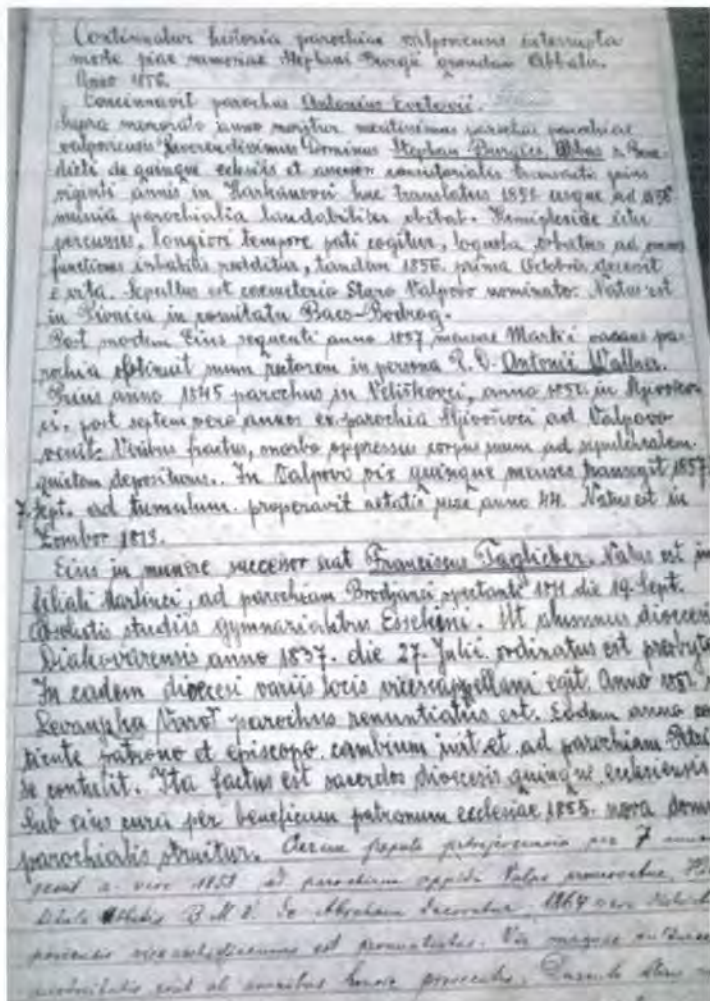 Continuatur historia parochiae valpovensis interrupta
morte piae memoriae Stephani Burgii quondam Abbatis.
Anno 1856.
Concinnavit parochus Antonius
Supra memorato anno moritur meritissimus parochus parochiae
valpovensis Reverendissimus Dominus Stephan Burgies, Abbas s. Bene-
dicti de quinque ecclesiis et assessor consistorialis transactis prius
viginti annis in Harkanovci huc translatus 1835 usque ad 1856
munia parochialia laudabiliter obibat. Hemiplexiae ictu
percussus, longiori tempore pati cogitur, loquela orbatus ad omnes
functiones inhabilis redditur, tandem 1856. prima Octobris decessit
e vita. Sepultus est coemeterio Staro Valpovo nominato. Natus est
in Pivnica in comitatu Bacs-Bodrog.
Post modem Eius sequenti anno 1857 mensae Martii vacans pa-
rochia obtinuit suum rectorem in persona R. D. Antonii Wallner.
Prius anno 1845 parochus in Veliškovci, anno in
post septem vero annos ex parochia ad Valpovo
venit. Viribus fractus, morbo oppressus corpus suum ad sepulchralem
quietem depositurus. In Valpovo vix quinque menses transegit 1857
7 Sept. ad tumulum properavit aetatis suae anno 44. Natus est in
Zombor 1813.
Eius in munere successor erat Franciscus Taglieber. Natus est in
filiali Martinci, ad parochiam Brodjanci spectante 1811 die 19. Sept.
Absolutis studiis gymnasialibus Essekini. Ut alumnus dioecesis
Diakovarensis anno 1837. die 27. Julii ordinatus est presbyte
In eadem dioecesi variis locis vicecappellani egit. Anno 1852
Levanjska Varoš parochus renuntiatus est. Eodem anno
patrono et episcopo cambium init et ad parochiam Petri
se contulit. Ita factus est sacerdos dioecesis quinque ecclesiensis
Sub eius cura per beneficum patronum ecclesiae 1855. nova dom
parochialis struitur. populi per 7
1859 ad parochiam oppidi Valpo promovetur,
Abbatis B. M. V. de Abraham decoratur, 1864 vero
est pronuntiatus. Vir magnae
ab omnibus